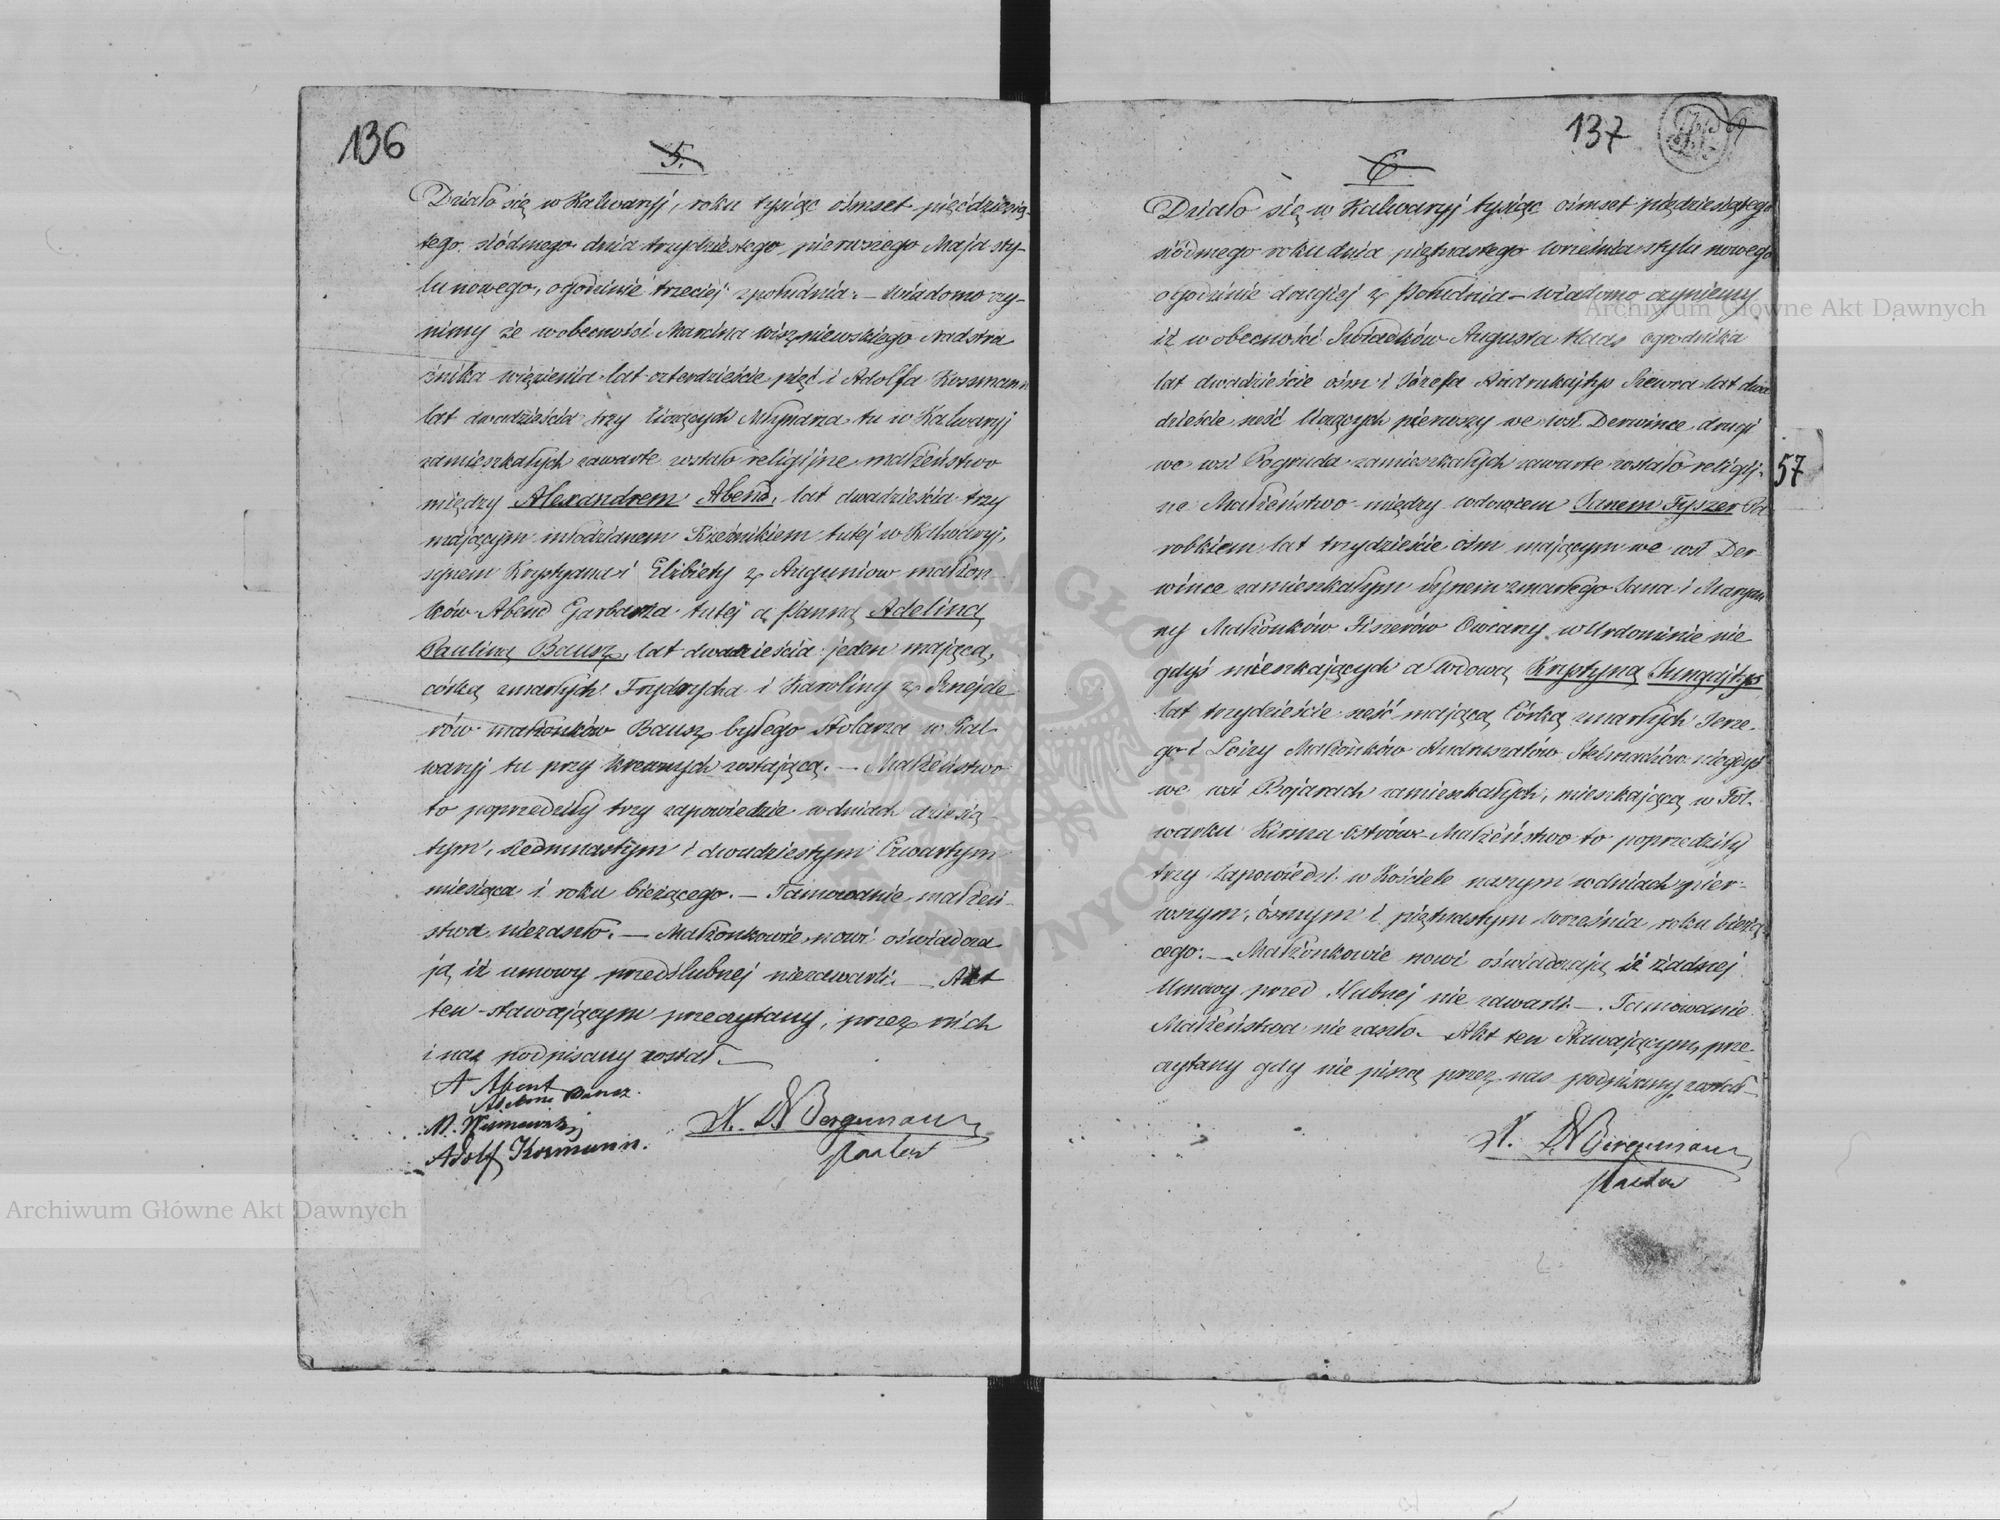 136
5.
Działo się w Kalwaryj, roku tysiąc ośmset pięćdziesią-
tego siódmego dnia trzydziestego pierwszego Maja sty-
lu nowego, o godzinie trzeciej z południa. — Wiadomo czy-
nimy że w obecności Marcina Wiszniewskiego Nadstra
żnika więzienia lat czterdzieście pięć i Adolfa Kosmann
lat dwadzieścia trzy liczących Młynarza tu w Kalwaryj
zamieszkałych zawarte zostało religijne małżeństwo
między Alexandrem Abend, lat dwadzieścia trzy
mającym młodzianem Rzeźnikiem tutej w Kalwaryj,
synem Krystyana i Elżbiety z Auguniow małżon
ków Abend Garbarza tutej a Panną Adeliną
Pauliną Bausz, lat dwadzieścia jeden mającą,
córką zmarłych Frydrycha i Karoliny z Sznejde
rów małżonków Bausz byłego Stolarza w Kal
waryj tu przy krewnych zostającą. — Małżeństwo
to poprzedziły trzy zapowiedzie w dniach dziesią
tym, siedmnastym i dwudziestym Czwartym
miesiąca i roku bieżącego. — Tamowanie małżeń
stwa niezaszło. — Małżonkowie nowi oświadcza
ją iż umowy przedślubnej niezawarli. — Akt
ten stawającym przeczytany, przez nich
i nas podpisany został. —
A Abent
Adelina Bausz.
M. Wiszniewski
Adolf Kosmann.
X. D Bergmann
Pastor
137
6
Działo się w Kalwaryj tysiąc ośmset pięćdziesiątego
siódmego roku dnia piętnastego Września stylu nowego
o godzinie drugiej z Południa — Wiadomo czyniemy
iż w obecności Świadków Augusta Haas ogrodnika
lat dwadzieście ośm i Józefa Andrukajtys Szewca lat dwa
dzieście sześć liczących pierwszy we wsi Derwince drugi
we wsi Pogruda zamieszkałych zawarte zostało religij-
ne Małżeństwo między wdowcem Janem Fyszer Pa
robkiem lat trzydzieście ośm mającym we wsi Der-
wince zamieszkałym synem zmarłego Jana i Maryan
ny Małżonków Fiszerów Owczarzy w Urdominie nie
gdyś mieszkających a Wdową Krystyną Jungajtys
lat trzydzieście sześć mającą Córką zmarłych Jerze-
go i Loizy Małżonków Andruszatów Stelmachów niegdyś
we wsi Bojarach zamieszkałych, mieszkającą w Fol-
warku Kirsna Ostrów — Małżeństwo to poprzedziły
trzy Zapowiedzi w Kościele naszym w dniach pier-
wszym, ósmym i piętnastym Września roku bieżą
cego. — Małżonkowie nowi oświadczają iż żadnej
Umowy przed ślubnej nie zawarli. — Tamowanie
Małżeństwa nie zaszło. Akt ten Stawającym prze-
czytany gdy nie piszą przez nas podpisany został —
X. D Bergmann
Pastor
57
Archiwum Główne Akt Dawnych
Archiwum Główne Akt Dawnych
ARCHIWUM GŁÓWNE AKT DAWNYCH